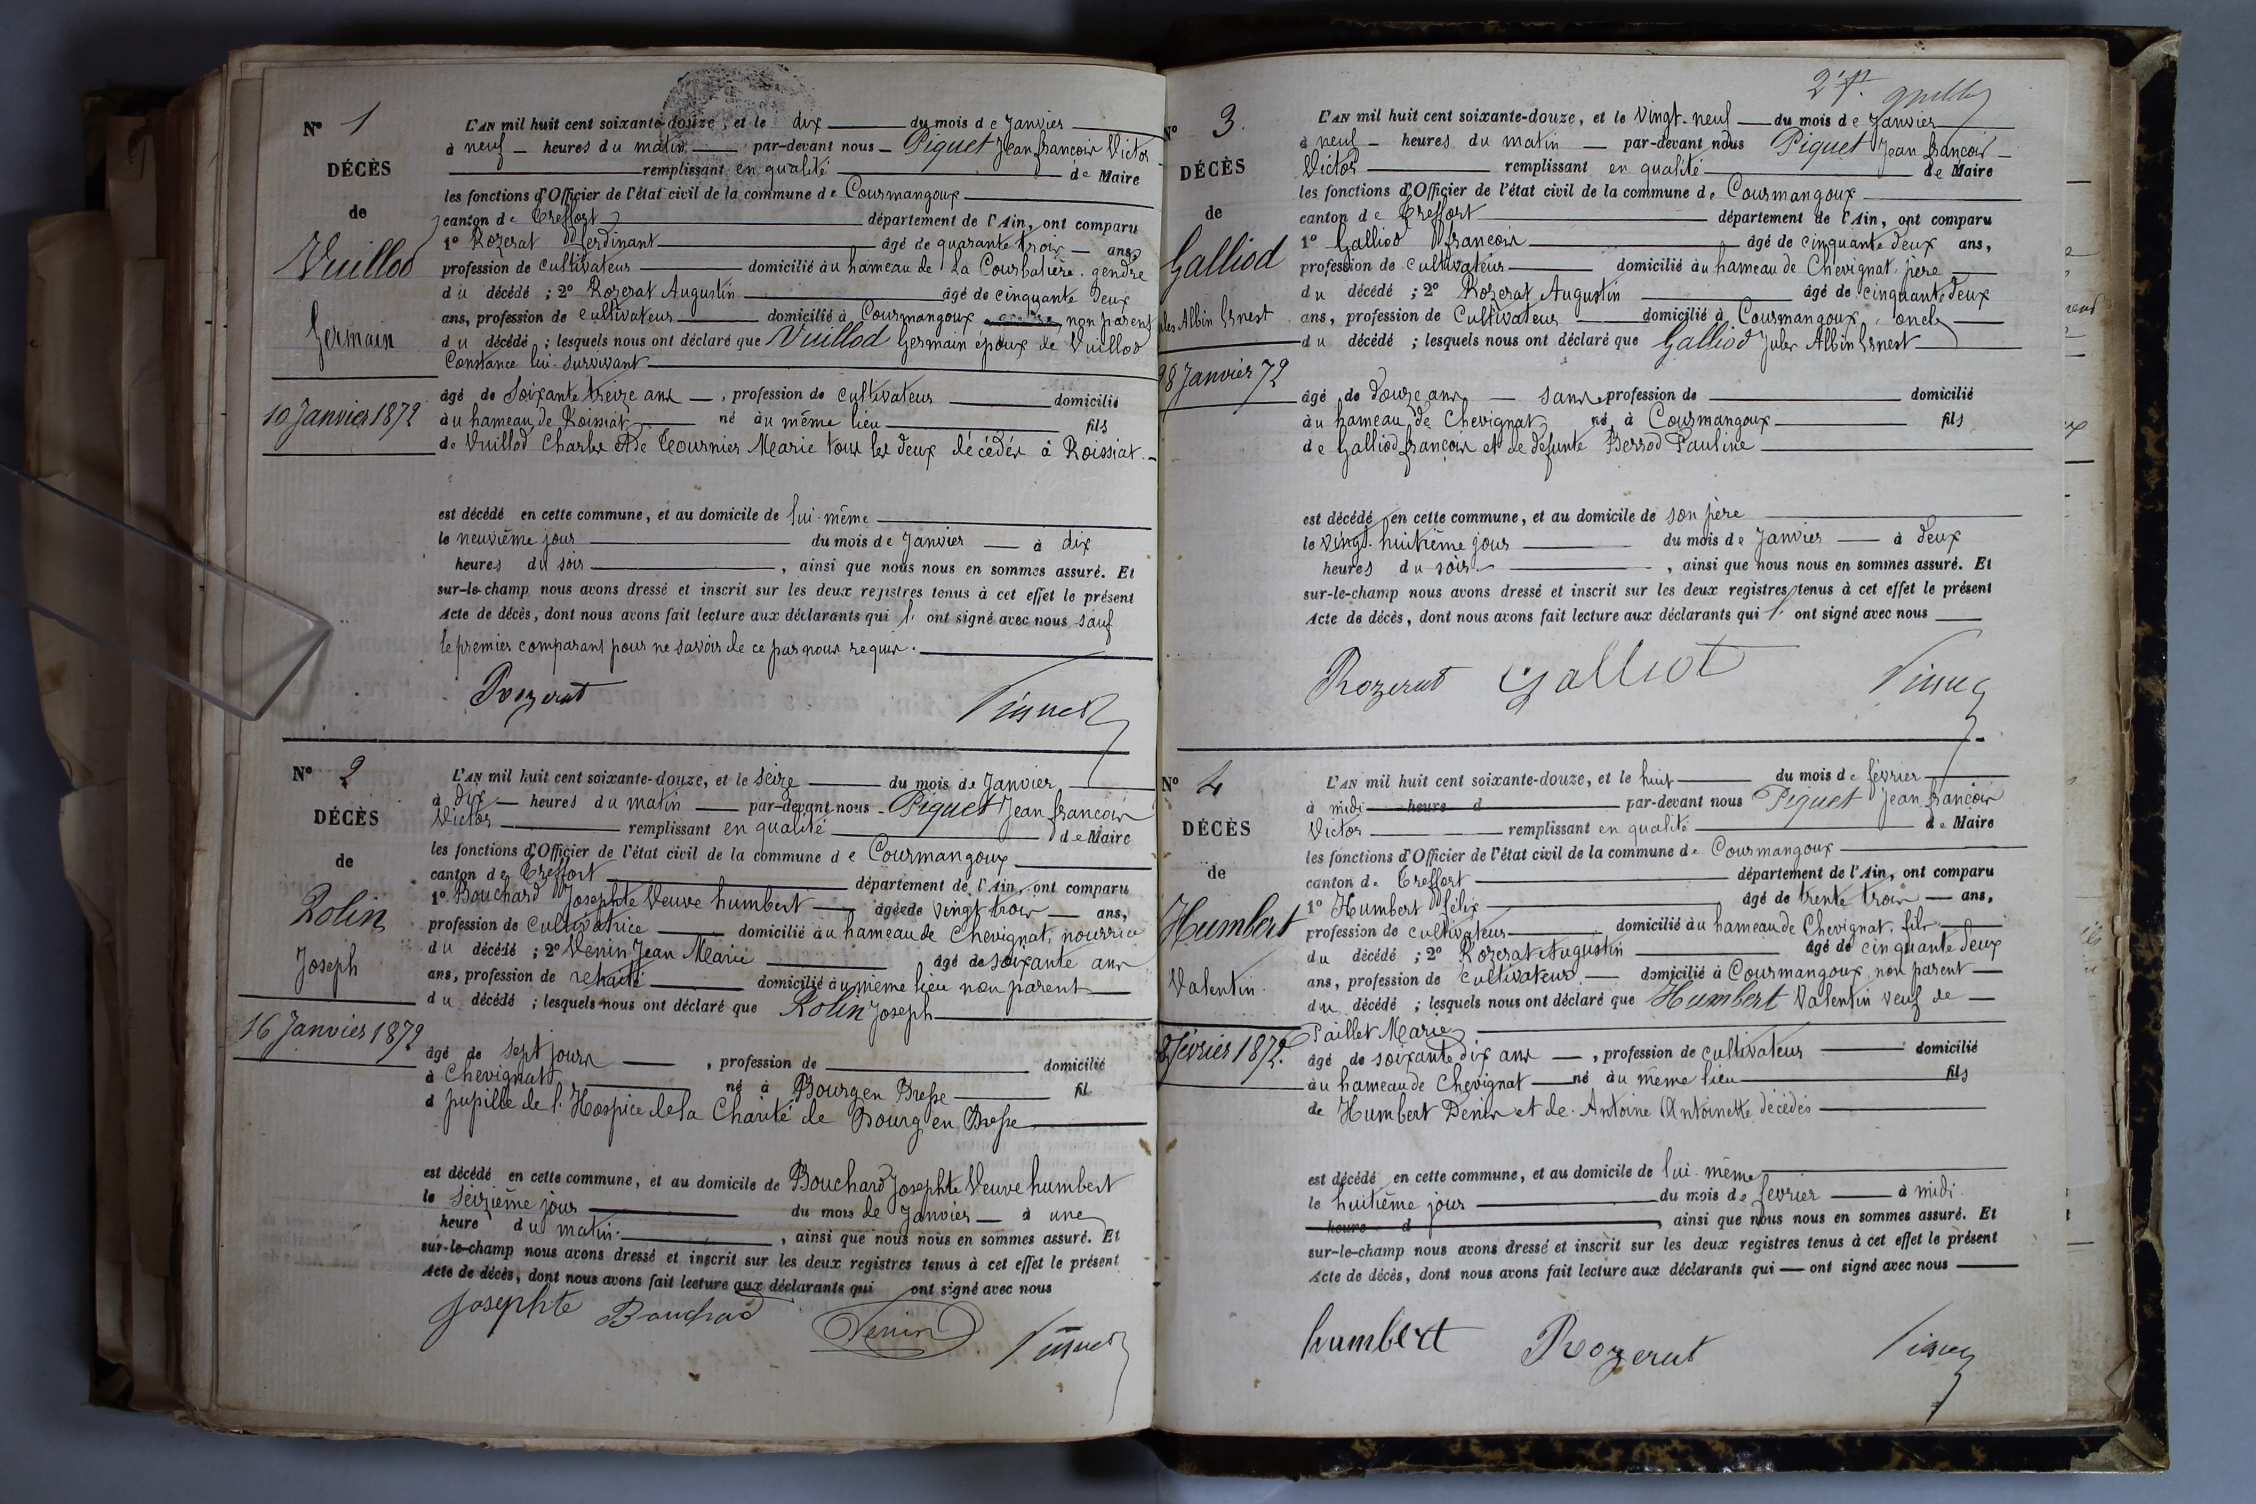 Nº 1
DÉCÈS
de
Vuillod
Germain
10 Janvier 1872
L'AN mil huit cent soixante-douze, et le dix du mois de Janvier
à neuf heures du matin par-devant nous Piquet Jean françois Victor
remplissant en qualité de Maire
les fonctions d'Officier de l'état civil de la commune de Courmangoux
canton de Treffort département de l'Ain, ont comparu
1º Rozerat ferdinant âgé de quarante trois ans,
profession de cultivateur domicilié au hameau de la Courbatière gendre
du décédé ; 2º Rozerat Augustin âgé de cinquante deux
ans, profession de cultivateur domicilié à Courmangoux non parent
du décédé ; lesquels nous ont déclaré que Vuillod Germain époux de Vuillod
Constance lui survivant
âgé de soixante treize ans , profession de cultivateur domicilié
au hameau de Roissiat né au même lieu fils
de Vuillod Charles et de Tournier Marie tous les deux décédés à Roissiat.
est décédé en cette commune, et au domicile de lui-même
le neuvième jour du mois de Janvier à dix
heures du soir , ainsi que nous nous en sommes assuré. Et
sur-le-champ nous avons dressé et inscrit sur les deux registres tenus à cet effet le présent
Acte de décès, dont nous avons fait lecture aux déclarants qui l' ont signé avec nous sauf
le premier comparant pour ne savoir de ce par nous requis.
Rozerat Piquet
Nº 2
DÉCÈS
de
Rolin
Joseph
16 Janvier 1872
L'AN mil huit cent soixante-douze, et le seize du mois de Janvier
à dix heures du matin par-devant nous Piquet Jean françois
Victor remplissant en qualité de Maire
les fonctions d'Officier de l'état civil de la commune de Courmangoux
canton de Treffort département de l'Ain, ont comparu
1º Bouchard Josephte Veuve humbert âgée de vingt trois ans,
profession de cultivatrice domicilié au hameau de Chevignat, nourrice
du décédé ; 2º Venin Jean Marie âgé de soixante ans
ans, profession de retraité domicilié au même lieu non parent
du décédé ; lesquels nous ont déclaré que Rolin Joseph
âgé de sept jours , profession de domicilié
à Chevignat né à Bourg en Bresse fil
d pupille de l'Hospice de la Charité de Bourg en Bresse
est décédé en cette commune, et au domicile de Bouchard Josephte Veuve humbert
le seizième jour du mois de Janvier à une
heure du matin. , ainsi que nous nous en sommes assuré. Et
sur-le-champ nous avons dressé et inscrit sur les deux registres tenus à cet effet le présent
Acte de décès, dont nous avons fait lecture aux déclarants qui ont signé avec nous
Josephte Bouchard Venin Piquet
2e f.
Nº 3.
DÉCÈS
de
Galliod
Jules Albin Ernest
28 Janvier 72
L'AN mil huit cent soixante-douze, et le vingt-neuf du mois de Janvier
à neuf heures du matin par-devant nous Piquet Jean françois
Victor remplissant en qualité de Maire
les fonctions d'Officier de l'état civil de la commune de Courmangoux
canton de Treffort département de l'Ain, ont comparu
1º Galliod françois âgé de cinquante deux ans,
profession de cultivateur domicilié au hameau de Chevignat père
du décédé ; 2º Rozerat Augustin âgé de cinquante deux
ans, profession de Cultivateur domicilié à Courmangoux, oncle
du décédé ; lesquels nous ont déclaré que Galliod Jules Albin Ernest
âgé de douze ans sans profession de domicilié
au hameau de Chevignat né à Courmangoux fils
de Galliod françois et de défunte Berrod Pauline
est décédé en cette commune, et au domicile de son père
le vingt-huitième jour du mois de Janvier à deux
heures du soir , ainsi que nous nous en sommes assuré. Et
sur-le-champ nous avons dressé et inscrit sur les deux registres tenus à cet effet le présent
Acte de décès, dont nous avons fait lecture aux déclarants qui l' ont signé avec nous
Rozerat Galliot Piquet
Nº 4
DÉCÈS
de
Humbert
Valentin.
8 février 1872.
L'AN mil huit cent soixante-douze, et le huit du mois de février
à midi heure d par-devant nous Piquet Jean françois
Victor remplissant en qualité de Maire
les fonctions d'Officier de l'état civil de la commune de Courmangoux
canton de Treffort département de l'Ain, ont comparu
1º Humbert félix âgé de trente trois ans,
profession de cultivateur domicilié au hameau de Chevignat, fils
du décédé ; 2º Rozerat Augustin âgé de cinquante deux
ans, profession de cultivateur domicilié à Courmangoux, non parent
du décédé ; lesquels nous ont déclaré que Humbert Valentin veuf de
Paillet Marie
âgé de soixante dix ans , profession de cultivateur domicilié
au hameau de Chevignat né au même lieu fils
de Humbert Denis et de Antoine Antoinette décédés
est décédé en cette commune, et au domicile de lui-même
le huitième jour du mois de février à midi
heure d , ainsi que nous nous en sommes assuré. Et
sur-le-champ nous avons dressé et inscrit sur les deux registres tenus à cet effet le présent
Acte de décès, dont nous avons fait lecture aux déclarants qui ont signé avec nous
humbert Rozerat Piquet